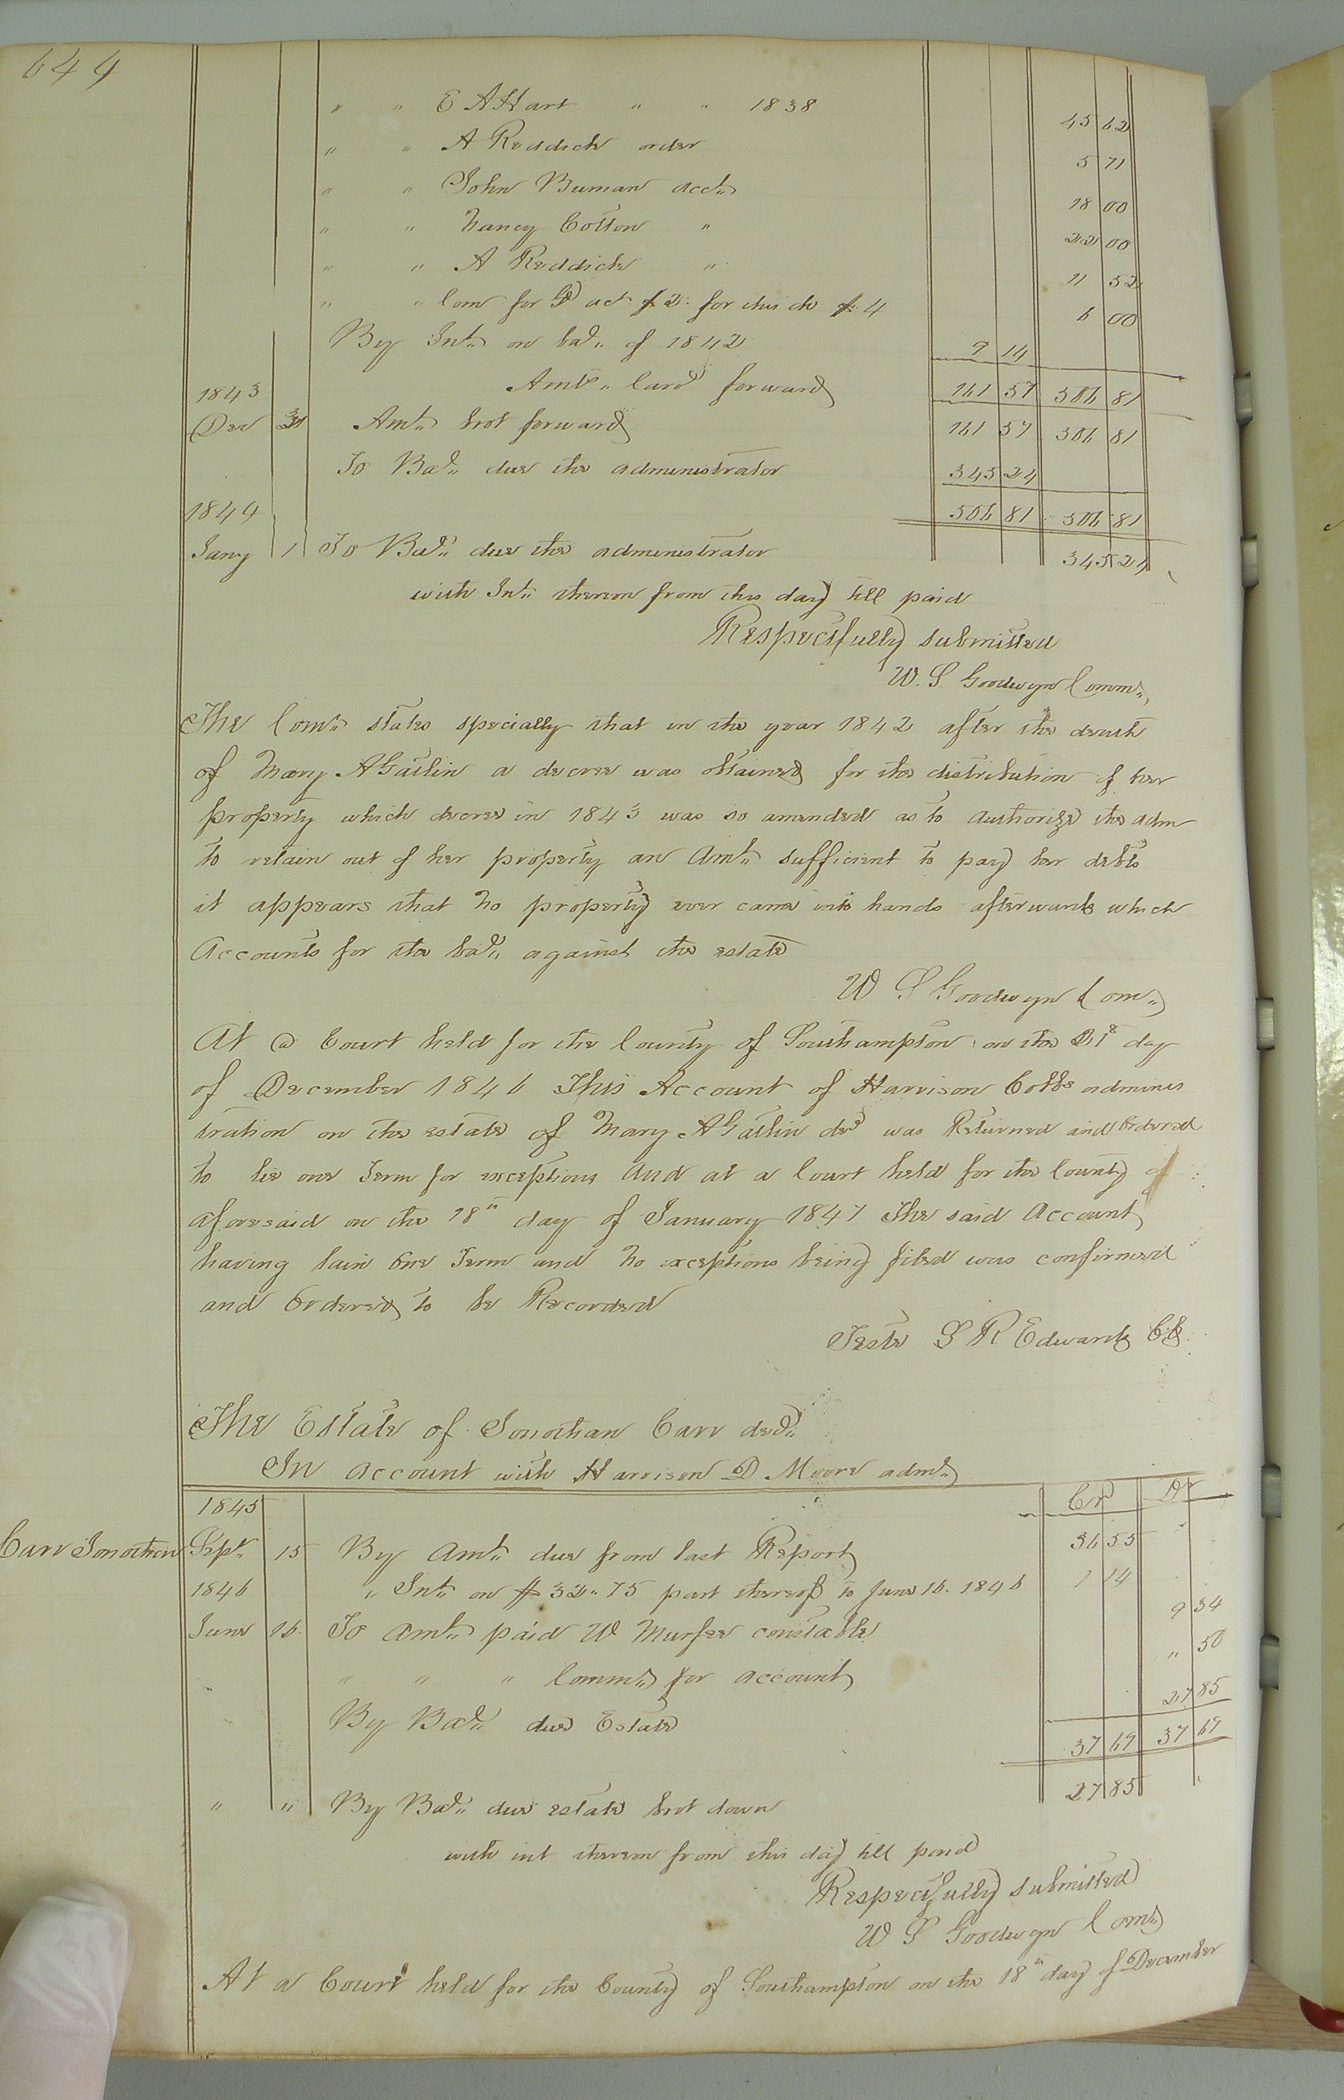 644
" " E A Hart " " 1838 45 62
" " A Reddick order 5 71
" " John Buman acct 18 00
" " Nancy Cotton " 22 00
" " A Reddick " 11 52
" " Com for act $2. for this do $4 6 00
By Int on bal of 1842 9 14
1843 Amts Card forward 161 57 506 81
Dec 31 Amt brot forward 161 57 506 81
To Bal due the administrator 345 24
1844 506 81 506 81
Jany 1 To Bal due the administrator 345 24
with Int thereon from this day till paid
Respectfully submitted
W. S. Goodwyn Comm
The Com states specially that in the year 1842 after the death
of Mary A Gatlin a decree was obtained for the distribution of her
property which decree in 1843 was so amended as to authorize the adm
to retain out of her property an Amt sufficient to pay her debts
it appears that no property ever came into hands afterwards which
Accounts for the bal against the estate
W S Goodwyn Com
At a Court held for the County of Southampton on the 21st day
of December 1846 This Account of Harrison Cobbs adminis
tration on the estate of Mary A Gatlin decd was Returned and Ordered
to lie one Term for exceptions And at a Court held for the County of
aforesaid on the 18th day of January 1847 The said Account
having lain One Term and no exceptions being filed was confirmed
and Ordered to be Recorded
Teste L R Edwards Ck
The Estate of Jonathan Carr decd
In account with Harrison D Moore adm
1845 Cr Dr
Carr Jonathan Sept. 15 By Amt due from last Report 36 55
1846 " Int on $32.75 part thereof to June 16. 1846 1 14
June 16. To Amt paid W Murfee constable 9 34
" " " Comm for account " 50
By Bal due Estate 27 85
37 69 37 69
" " By Bal due estate brot down 27 85
with int thereon from this day till paid
Respectfully submitted
W S Goodwyn Com
At a Court held for the County of Southampton on the 18th day of December